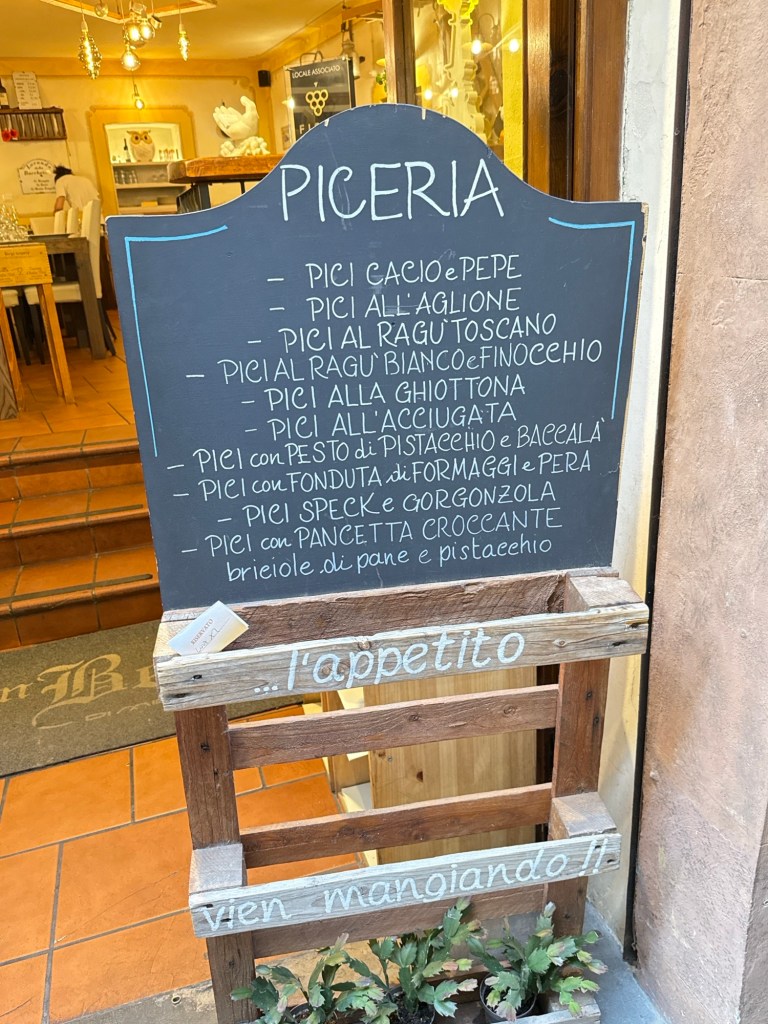 LOCALE ASSOCIATO
PICERIA
- PICI CACIO e PEPE
- PICI ALL'AGLIONE
- PICI AL RAGU' TOSCANO
- PICI AL RAGU' BIANCO e FINOCCHIO
- PICI ALLA GHIOTTONA
- PICI ALL'ACCIUGATA
- PICI con PESTO di PISTACCHIO e BACCALÀ
- PICI con FONDUTA di FORMAGGI e PERA
- PICI SPECK e GORGONZOLA
- PICI con PANCETTA CROCCANTE
briciole di pane e pistacchio
...l'appetito
vien mangiando!!